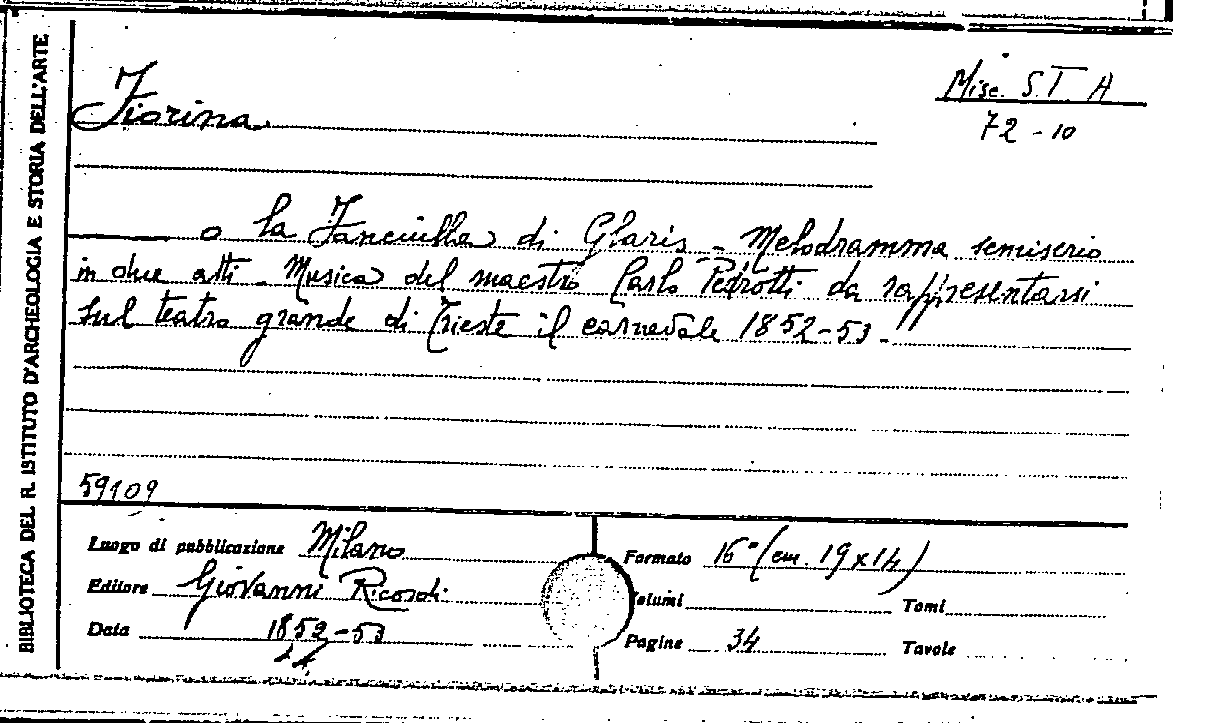 BIBLIOTECA DEL R. ISTITUTO D'ARCHEOLOGIA E STORIA DELL'ARTE
Misc. S.T. A
72-10
Fiorina
o la Fanciulla di Glaris - Melodramma semiserio
in due atti - Musica del maestro Carlo Pedrotti da rappresentarsi
sul teatro grande di Trieste il carnevale 1852-53.
59109
Luogo di pubblicazione Milano
Editore Giovanni Ricordi
Data 1852-53
Formato 16° (cm. 19x14)
Volumi Tomi
Pagine 34 Tavole